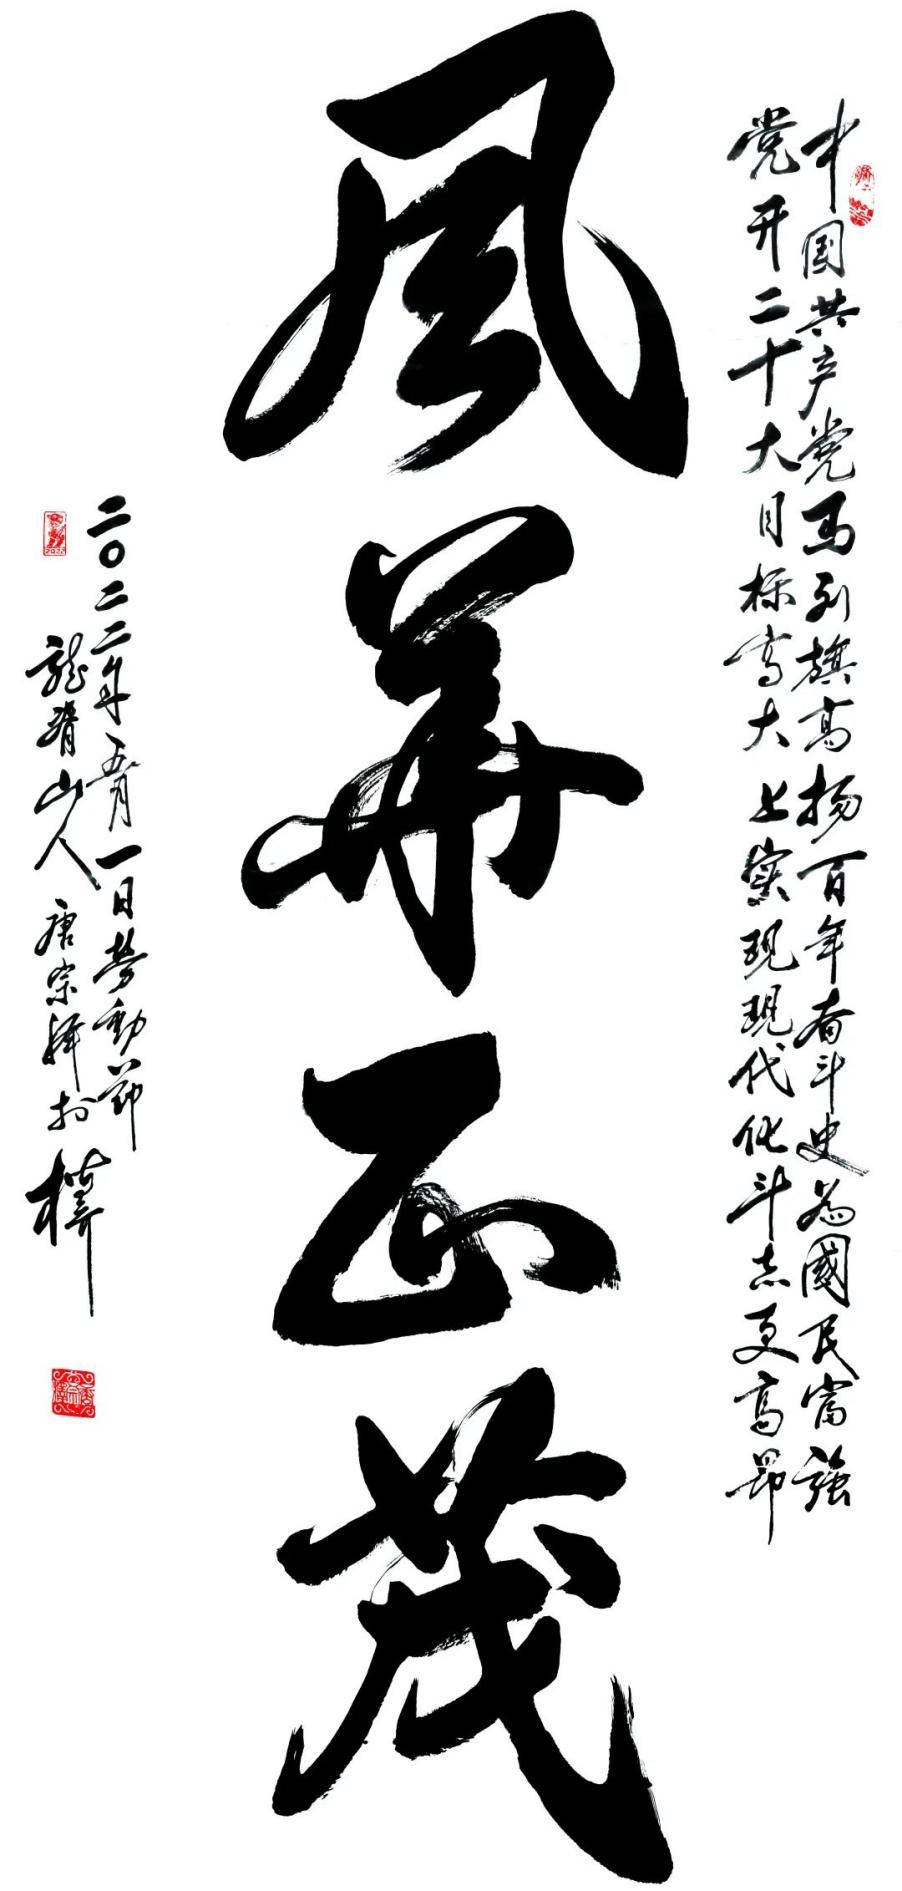 中国共产党马列旗高扬百年奋斗史为國民富强
党开二十大目标高大上实现现代化斗志更高昂
風華正茂
二〇二二年五月一日劳動節
龍眉山人唐宗輝於